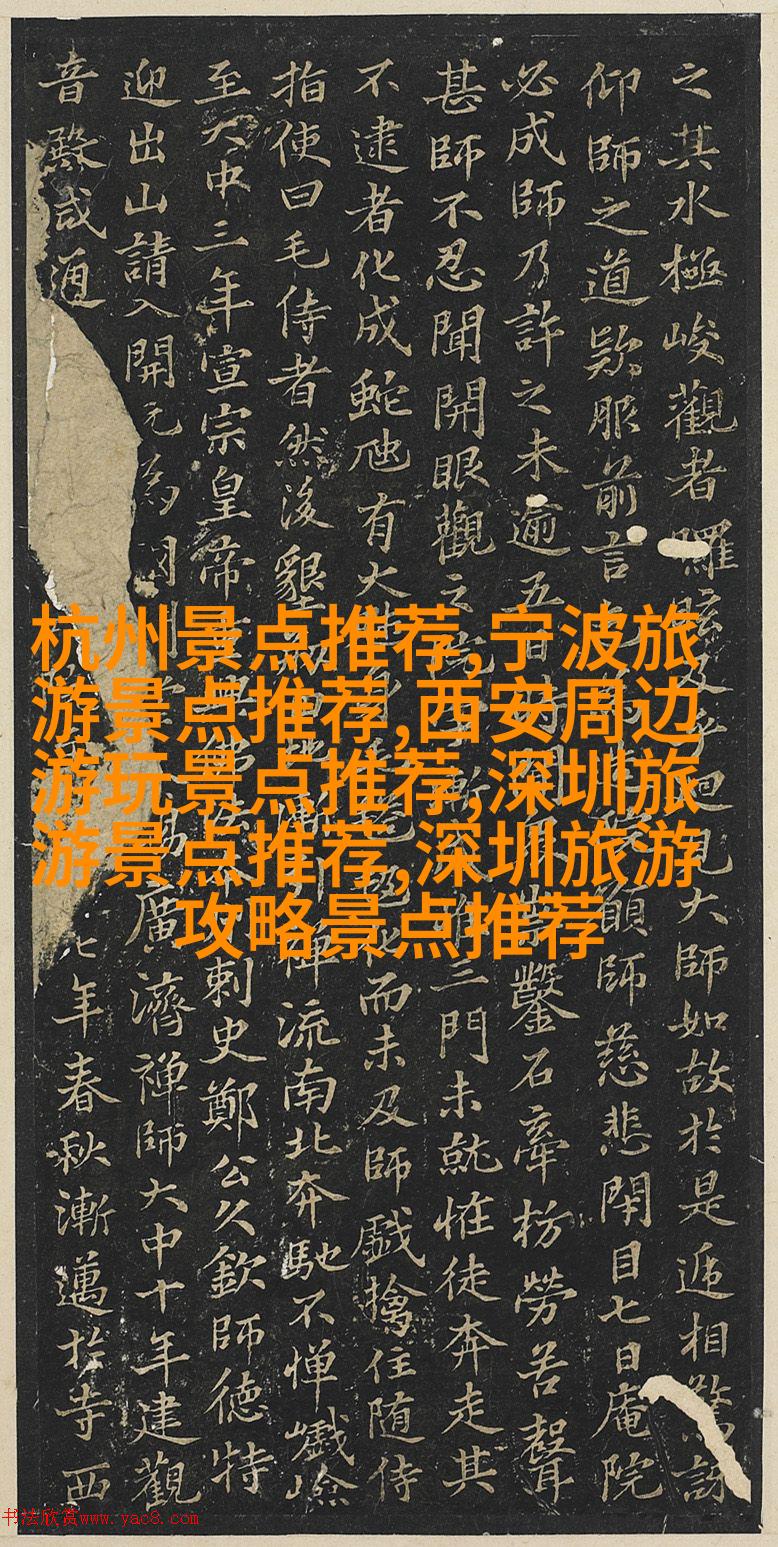 之其水極峻觀者 見大師如故於是遞相驚訝
仰師之道歎服前言 願師慈悲閉目七日庵院
必成師乃許之未逾五 鑿石牽枋勞苦聲
甚師不忍聞開眼觀之 三門未就惟徒奔走其
不逮者化成蛇虺有大 而未及師戲擒住随侍
指使曰毛侍者然後墾 禅流南北奔馳不憚巇嶮
至大中三年宣宗皇帝 刺史鄭公久欽師德特
迎出山請入開元為 廣濟禅師大中十年建觀
音殿咸通 七年春秋漸邁於寺西
杭州景点推荐,宁波旅
游景点推荐,西安周边
游玩景点推荐,深圳旅
游景点推荐,深圳旅游
攻略景点推荐
书法欣赏www.yac8.com